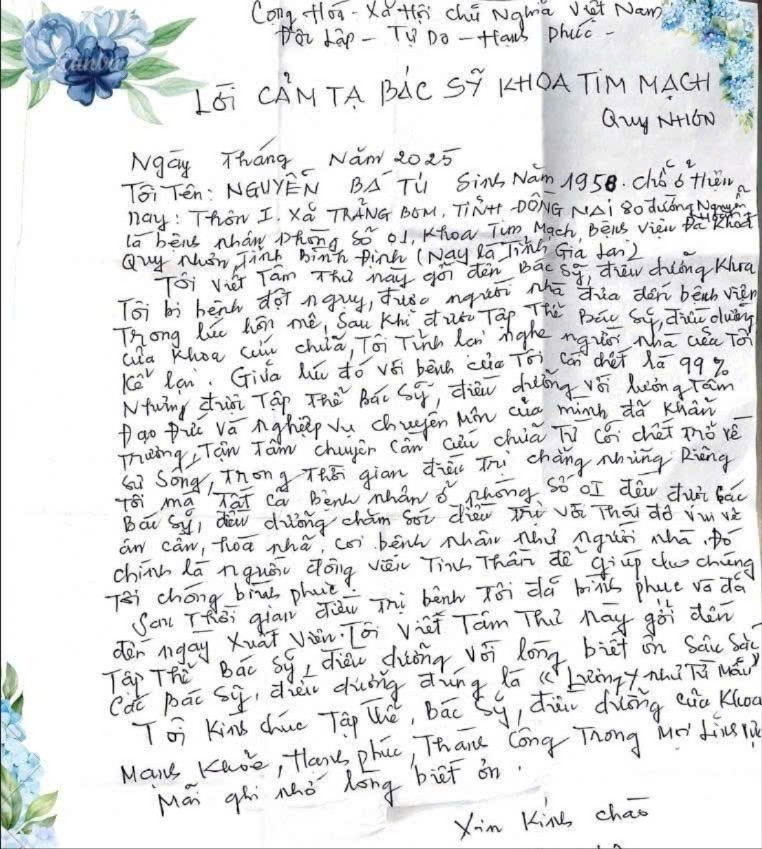 Cộng Hòa - Xã Hội chủ Nghĩa Việt Nam
Độc Lập - Tự Do - Hạnh Phúc -
Canva
LỜI CẢM TẠ BÁC SỸ KHOA TIM MẠCH
Quy NHƠN
Ngày Tháng Năm 2025
Tôi Tên: NGUYỄN BÁ TÚ Sinh Năm 1958. chỗ ở Hiện
nay: Thôn I. Xã TRẢNG BOM, TỈNH ĐỒNG NAI 80 đường Nguyễn
là bệnh nhân phòng Số 01, Khoa Tim Mạch, Bệnh viện Đa Khoa
Quy nhơn, Tỉnh Bình Định (Nay là Tỉnh Gia Lai)
Tôi viết Tâm Thư này gởi đến Bác Sỹ, điều dưỡng Khoa
Tôi bị bệnh đột nguy, được người nhà đưa đến bệnh viện
Trong lúc hôn mê, sau khi được Tập Thể Bác Sỹ, điều dưỡng
của Khoa cứu chữa, Tôi Tỉnh lại nghe người nhà của Tôi
Kể lại. Giữa lúc đó với bệnh của Tôi cái chết là 99%
Nhưng được Tập Thể Bác Sỹ, điều dưỡng với lương Tâm
Đạo Đức và nghiệp vụ chuyên Môn của mình đã Khẩn
Trương, Tận Tâm chuyên Cần cứu chữa Từ Cõi chết Trở về
Sự Sống, Trong Thời gian điều Trị chẳng những Riêng
Tôi mà Tất Cả Bệnh nhân ở phòng Số 01 đều được các
Bác Sỹ, điều dưỡng chăm Sóc điều Trị với Thái độ vui vẻ
ân cần, hòa nhã, coi bệnh nhân như người nhà. Đó
chính là nguồn động viên Tinh Thần để giúp cho chúng
Tôi chóng bình phục.
Sau Thời gian điều Trị bệnh Tôi đã bình phục và đã
đến ngày Xuất Viện. Tôi viết Tâm Thư này gởi đến
Tập Thể Bác Sỹ, điều dưỡng với lòng biết ơn Sâu Sắc
Các Bác Sỹ, điều dưỡng đúng là "Lương y như Từ Mẫu"
Tôi Kính chúc Tập Thể, Bác Sỹ, điều dưỡng của Khoa
Mạnh Khỏe, Hạnh phúc, Thành Công Trong Mọi Lĩnh vực
Mãi ghi nhớ lòng biết ơn.
Xin Kính chào